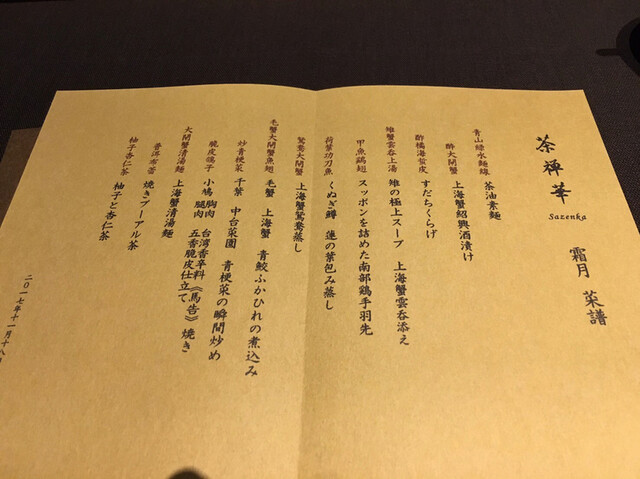 茶禅華
Sazenka
霜月 菜譜
青山緑水麺線 茶油素麺
酔大閘蟹 上海蟹紹興酒漬け
酢橘海蜇皮 すだちくらげ
雉蟹雲呑上湯 雉の極上スープ 上海蟹雲呑添え
甲魚鶏翅 スッポンを詰めた南部鶏手羽先
荷葉功刀魚 くぬぎ鱒 蓮の葉包み蒸し
鴛鴦大閘蟹 上海蟹鴛鴦蒸し
毛蟹大閘蟹魚翅 毛蟹 上海蟹 青鮫ふかひれの煮込み
炒青梗菜 千葉 中台菜園 青梗菜の瞬間炒め
脆皮鴿子 小鳩 胸肉 台湾香辛料《馬告》焼き
腿肉 五香脆皮仕立て
大閘蟹清湯麺 上海蟹清湯麺
普洱布蕾 焼きプーアル茶
柚子杏仁茶 柚子と杏仁茶
二〇一七年十一月十八